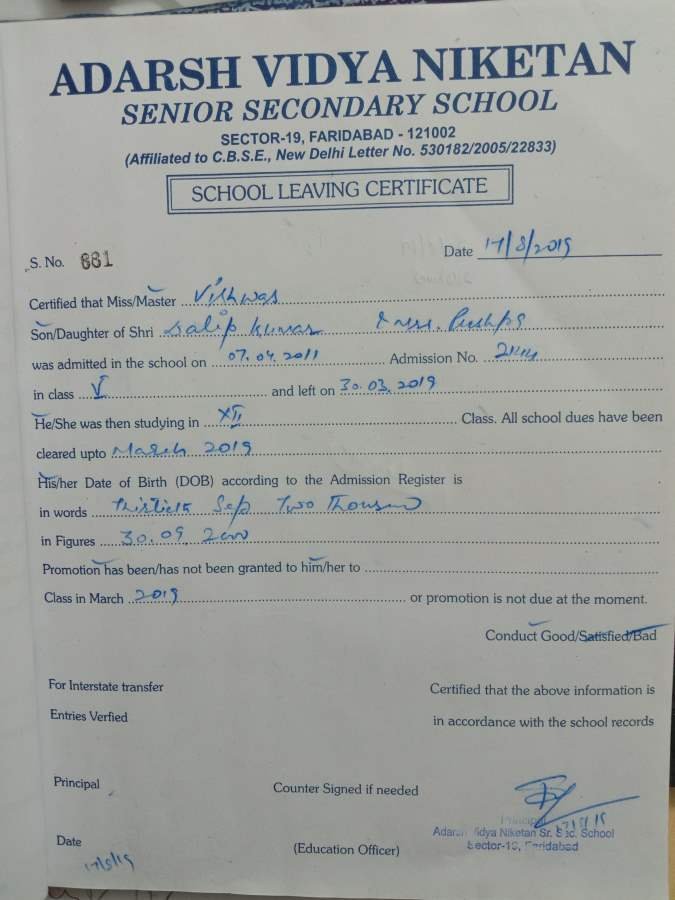 ADARSH VIDYA NIKETAN
SENIOR SECONDARY SCHOOL
SECTOR-19, FARIDABAD - 121002
(Affiliated to C.B.S.E., New Delhi Letter No. 530182/2005/22833)
SCHOOL LEAVING CERTIFICATE
S. No. 881 Date 17/8/2019
Certified that Miss/Master Vishwas
Son/Daughter of Shri Dalip Kumar & Mrs. Pushpa
was admitted in the school on 07.04.2011 Admission No.
in class V and left on 30.03.2019
He/She was then studying in XII Class. All school dues have been
cleared upto March 2019
His/her Date of Birth (DOB) according to the Admission Register is
in words Thirtieth Sep Two Thousand
in Figures 30.09.2000
Promotion has been/has not been granted to him/her to
Class in March 2019 or promotion is not due at the moment.
Conduct Good/Satisfied/Bad
For Interstate transfer Certified that the above information is
Entries Verfied in accordance with the school records
Principal Counter Signed if needed
Principal
Adarsh Vidya Niketan Sr. Sec. School
Date Sector-19, Faridabad
(Education Officer)